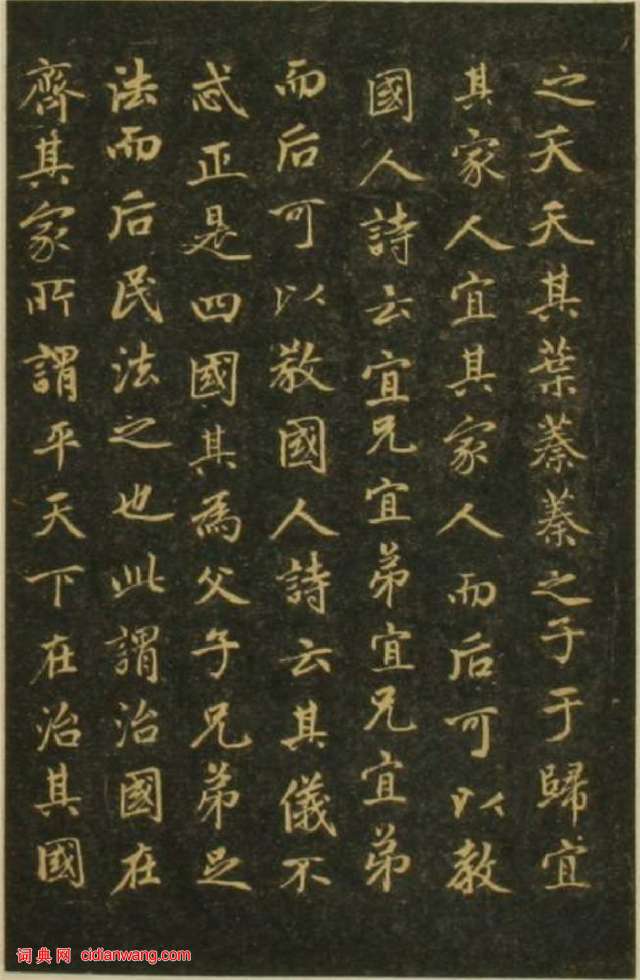 之夭夭其葉蓁蓁之子于歸宜
其家人宜其家人而后可以教
國人詩云宜兄宜弟宜兄宜弟
而后可以教國人詩云其儀不
忒正是四國其為父子兄弟足
法而后民法之也此謂治國在
齊其家所謂平天下在治其國
词典网 cidianwang.com